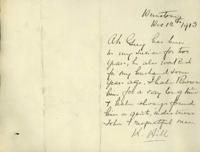 Winston
Dec 12th 1913
Ah Guy has been
in my service for two
years, he also worked
for my husband some
years ago. I have known
him for a very long time
& have always found
him a quiet, industrious
sober & respectful man
K. Hill